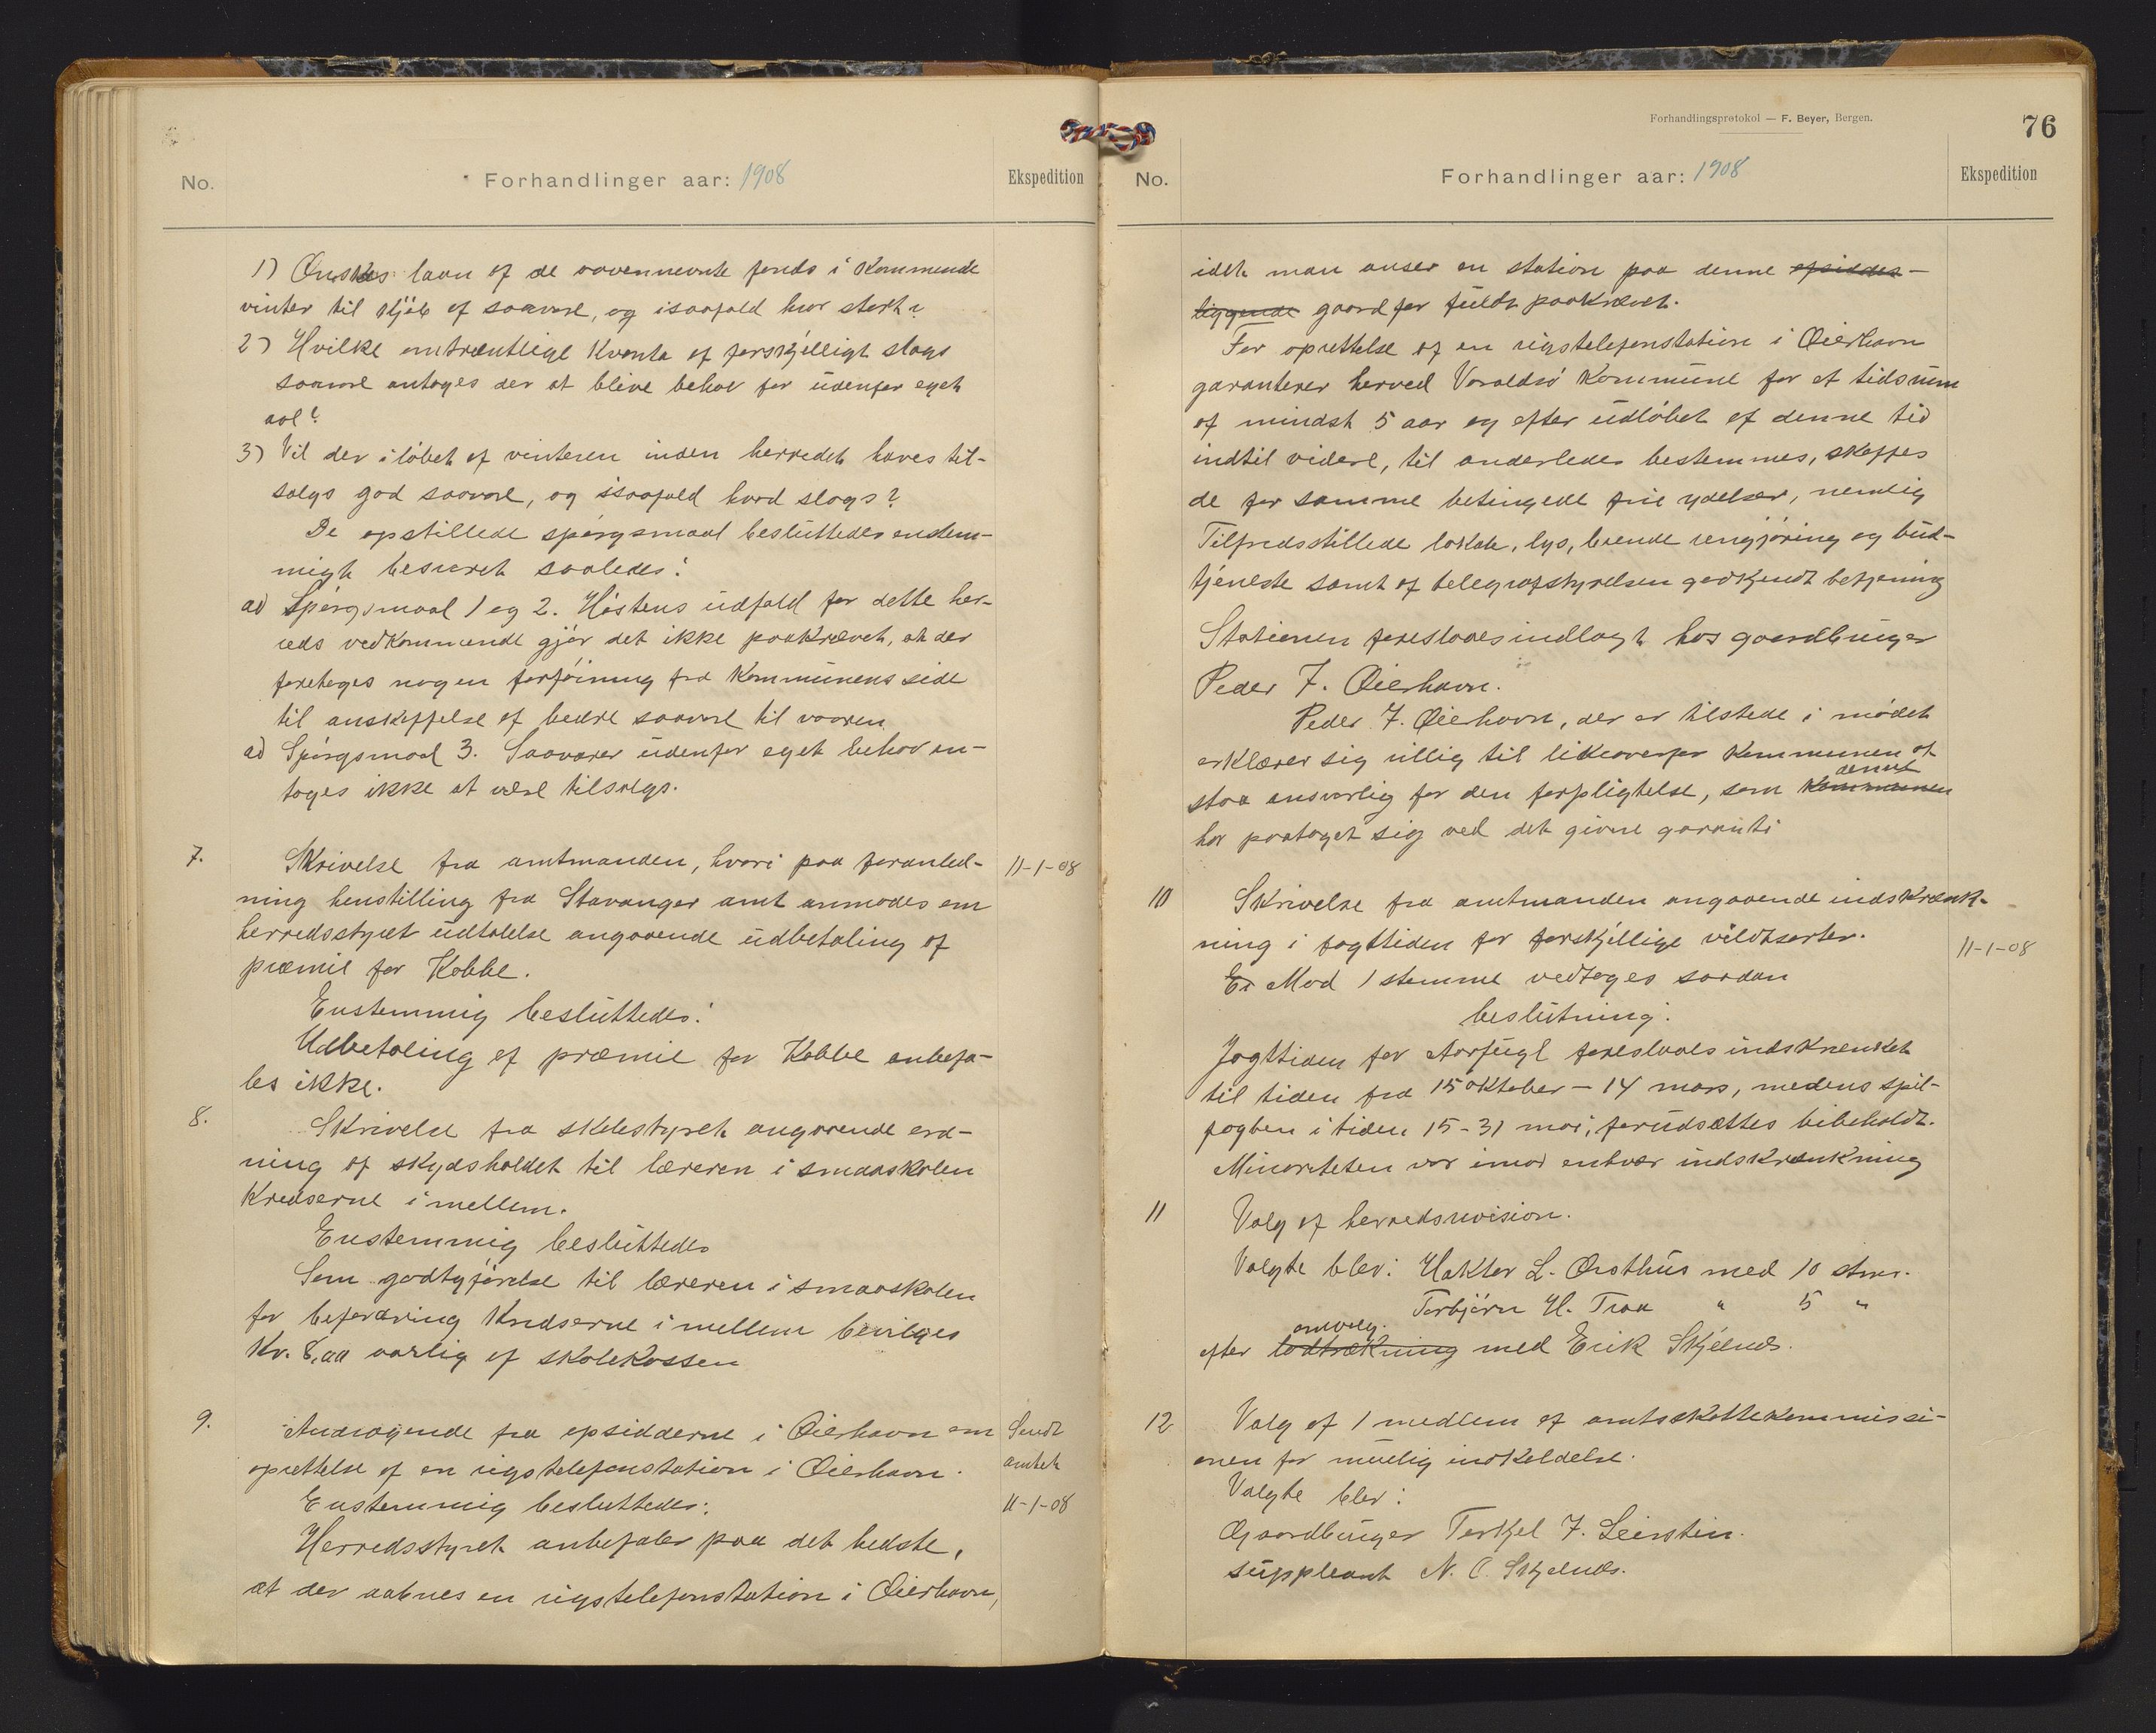 No.
Forhandlinger aar: 1908
Ekspedition
1) Ønskes laan af de ovennevnte fonds i kommende
vinter til kjøb af saavare, og isaafald hvor stort?
2) Hvilke omtrentlige kvanta af forskjelligt slags
saavare antages der at blive behov for udenfor eget
avl?
3) Vil der i løbet af vinteren inden herredet haves til-
salgs god saavare, og isaafald hvad slags?
De opstillede spørgsmaal besluttedes enstem-
migt besvaret saaledes:
ad Spørgsmaal 1 og 2. Høstens udfald for dette her-
reds vedkommende gjør det ikke paakrævet, at der
foretages nogen forføining fra kommunens side
til anskaffelse af bedre saavare til vaaren
ad Spørgsmaal 3. Saavarer udenfor eget behov an-
tages ikke at være tilsalgs.
7. Skrivelse fra amtmanden, hvori paa foranled- 11-1-08
ning henstilling fra Stavanger amt anmodes om
herredsstyret udtalelse angaaende udbetaling af
præmie for Kobbe.
Enstemmig besluttedes:
Udbetaling af præmie for Kobbe anbefa-
les ikke.
8. Skrivelse fra skolestyret angaaende ord-
ning af skydsholdet til læreren i smaaskolen
kredserne i mellem.
Enstemmig besluttedes
Som godtgjørelse til læreren i smaaskolen
for befordring kredserne i mellem bevilges
Kr. 8,00 aarlig af skolekassen
9. Andragende fra opsidderne i Øierhavn om Sendt
oprettelse af en rigstelefonstation i Øierhavn. amtet
Enstemmig besluttedes: 11-1-08
Herredsstyret anbefaler paa det bedste,
at der aabnes en rigstelefonstation i Øierhavn,
Forhandlingsprotokol — F. Beyer, Bergen.
76
No.
Forhandlinger aar: 1908
Ekspedition
idet man anser en station paa denne opsiddes-
liggende gaard for fuldt paakrævet.
For oprettelse af en rigstelefonstation i Øierhavn
garanterer herved Varaldsø kommune for et tidsrum
af mindst 5 aar og efter udløbet af denne tid
indtil videre, til anderledes bestemmes, skaffes
de for samme betingede frie ydelser, nemlig
Tilfredsstillede lokale, lys, brende rengjøring og bud-
tjeneste samt af telegrafstyrelsen godkjendt betjening
Stationen foreslaaes indlagt hos gaardbruger
Peder J. Øierhavn.
Peder J. Øierhavn, der er tilstede i mødet
erklærer sig villig til likeoverfor kommunen at
staa ansvarlig for den forpligtelse, som kommunen denne
har paataget sig ved det givne garanti
10 Skrivelse fra amtmanden angaaende indskrænk-
ning i jagttiden for forskjellige vildtsorter. 11-1-08
En Mod 1 stemme vedtoges saadan
beslutning:
Jagttiden for Aarfugl foreslaaes indskrenket
til tiden fra 15 oktober – 14 mars, medens spil-
jagten i tiden 15-31 mai, forudsættes bibeholdt.
Minoriteten var imod enhver indskrænkning
11 Valg af herredsrevision.
Valgte blev: Haktor L. Øvsthus med 10 stmr.
Torbjørn H. Traa " 5 "
omvalg.
efter lodtrækning med Erik Skjelnes.
12 Valg af 1 medlem af amtsskattekommissi-
onen for mulig indkaldelse.
Valgte blev:
Gaardbruger Terkjel J. Leirstein.
Suppleant N. O. Skjelnes.